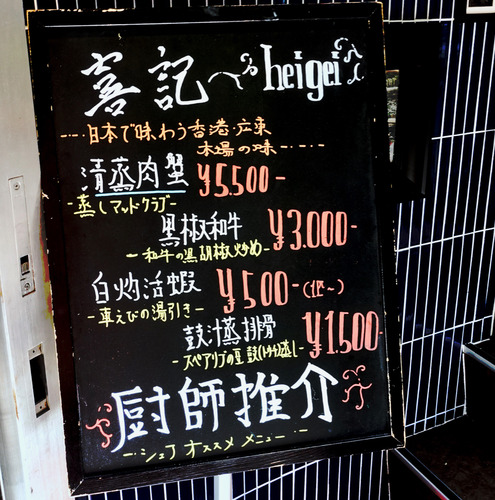 喜記 heigei
日本で味わう香港・広東
本場の味
清蒸肉蟹 ¥5,500-
-蒸しマッドクラブ-
黒椒和牛 ¥3,000-
-和牛の黒胡椒炒め-
白灼活蝦 ¥500-(1匹~)
-車えびの湯引き-
鼓汁蒸排骨 ¥1,500-
-スペアリブの豆鼓(トウチ)蒸し-
厨師推介
-シェフオススメメニュー-